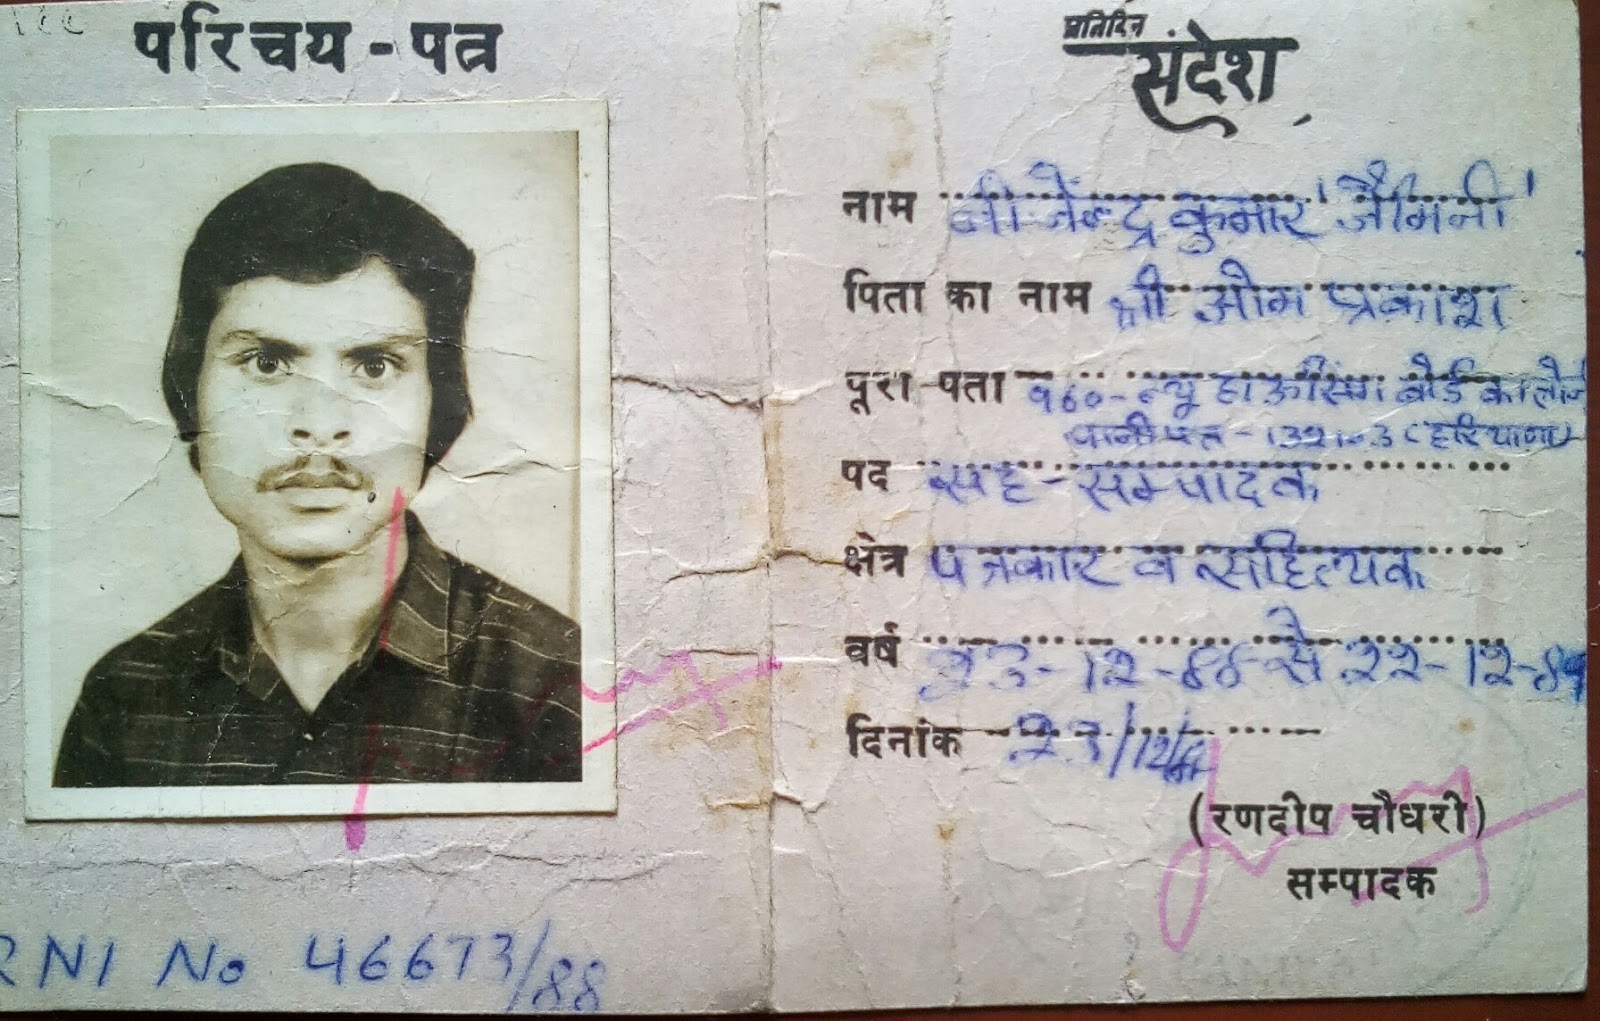 परिचय-पत्र
प्रतिदिन
संदेश
नाम बीजेन्द्र कुमार 'जैमिनी'
पिता का नाम श्री ओम प्रकाश
पूरा पता 960- न्यू हाऊसिंग बोर्ड कालोनी
पानीपत - 132103 (हरियाणा)
पद सह-सम्पादक
क्षेत्र पत्रकार व साहित्यक
वर्ष 23-12-88 से 22-12-89
दिनांक 23/12/88
(रणदीप चौधरी)
सम्पादक
RNI No 46673/88